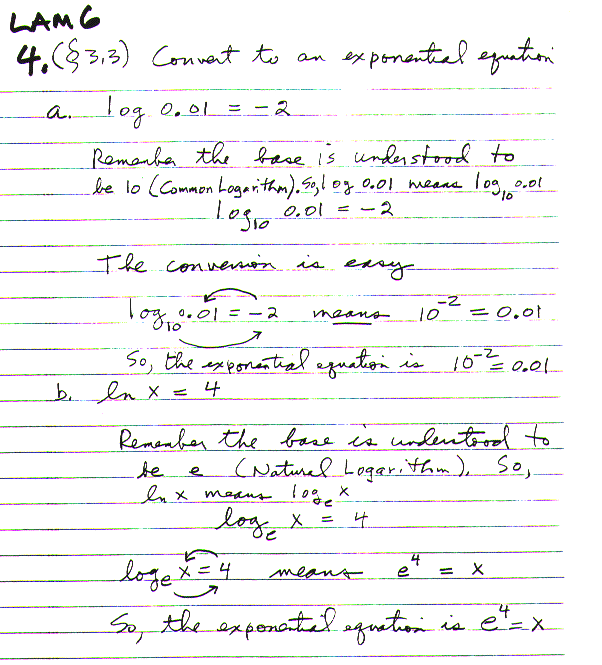 LAM 6
4. (§ 3.3) Convert to an exponential equation
a. log 0.01 = -2
Remember the base is understood to
be 10 (Common Logarithm). So, log 0.01 means log₁₀ 0.01
log₁₀ 0.01 = -2
The conversion is easy
log₁₀ 0.01 = -2 means 10⁻² = 0.01
So, the exponential equation is 10⁻² = 0.01
b. ln x = 4
Remember the base is understood to
be e (Natural Logarithm). So,
ln x means logₑ x
logₑ x = 4
logₑ x = 4 means e⁴ = x
So, the exponential equation is e⁴ = x